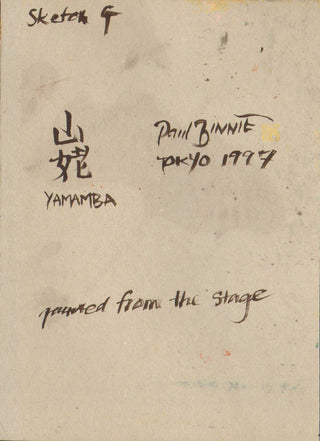 Sketch G
山姥
YAMAMBA
Paul BINNIE
TOKYO 1997
painted from the stage